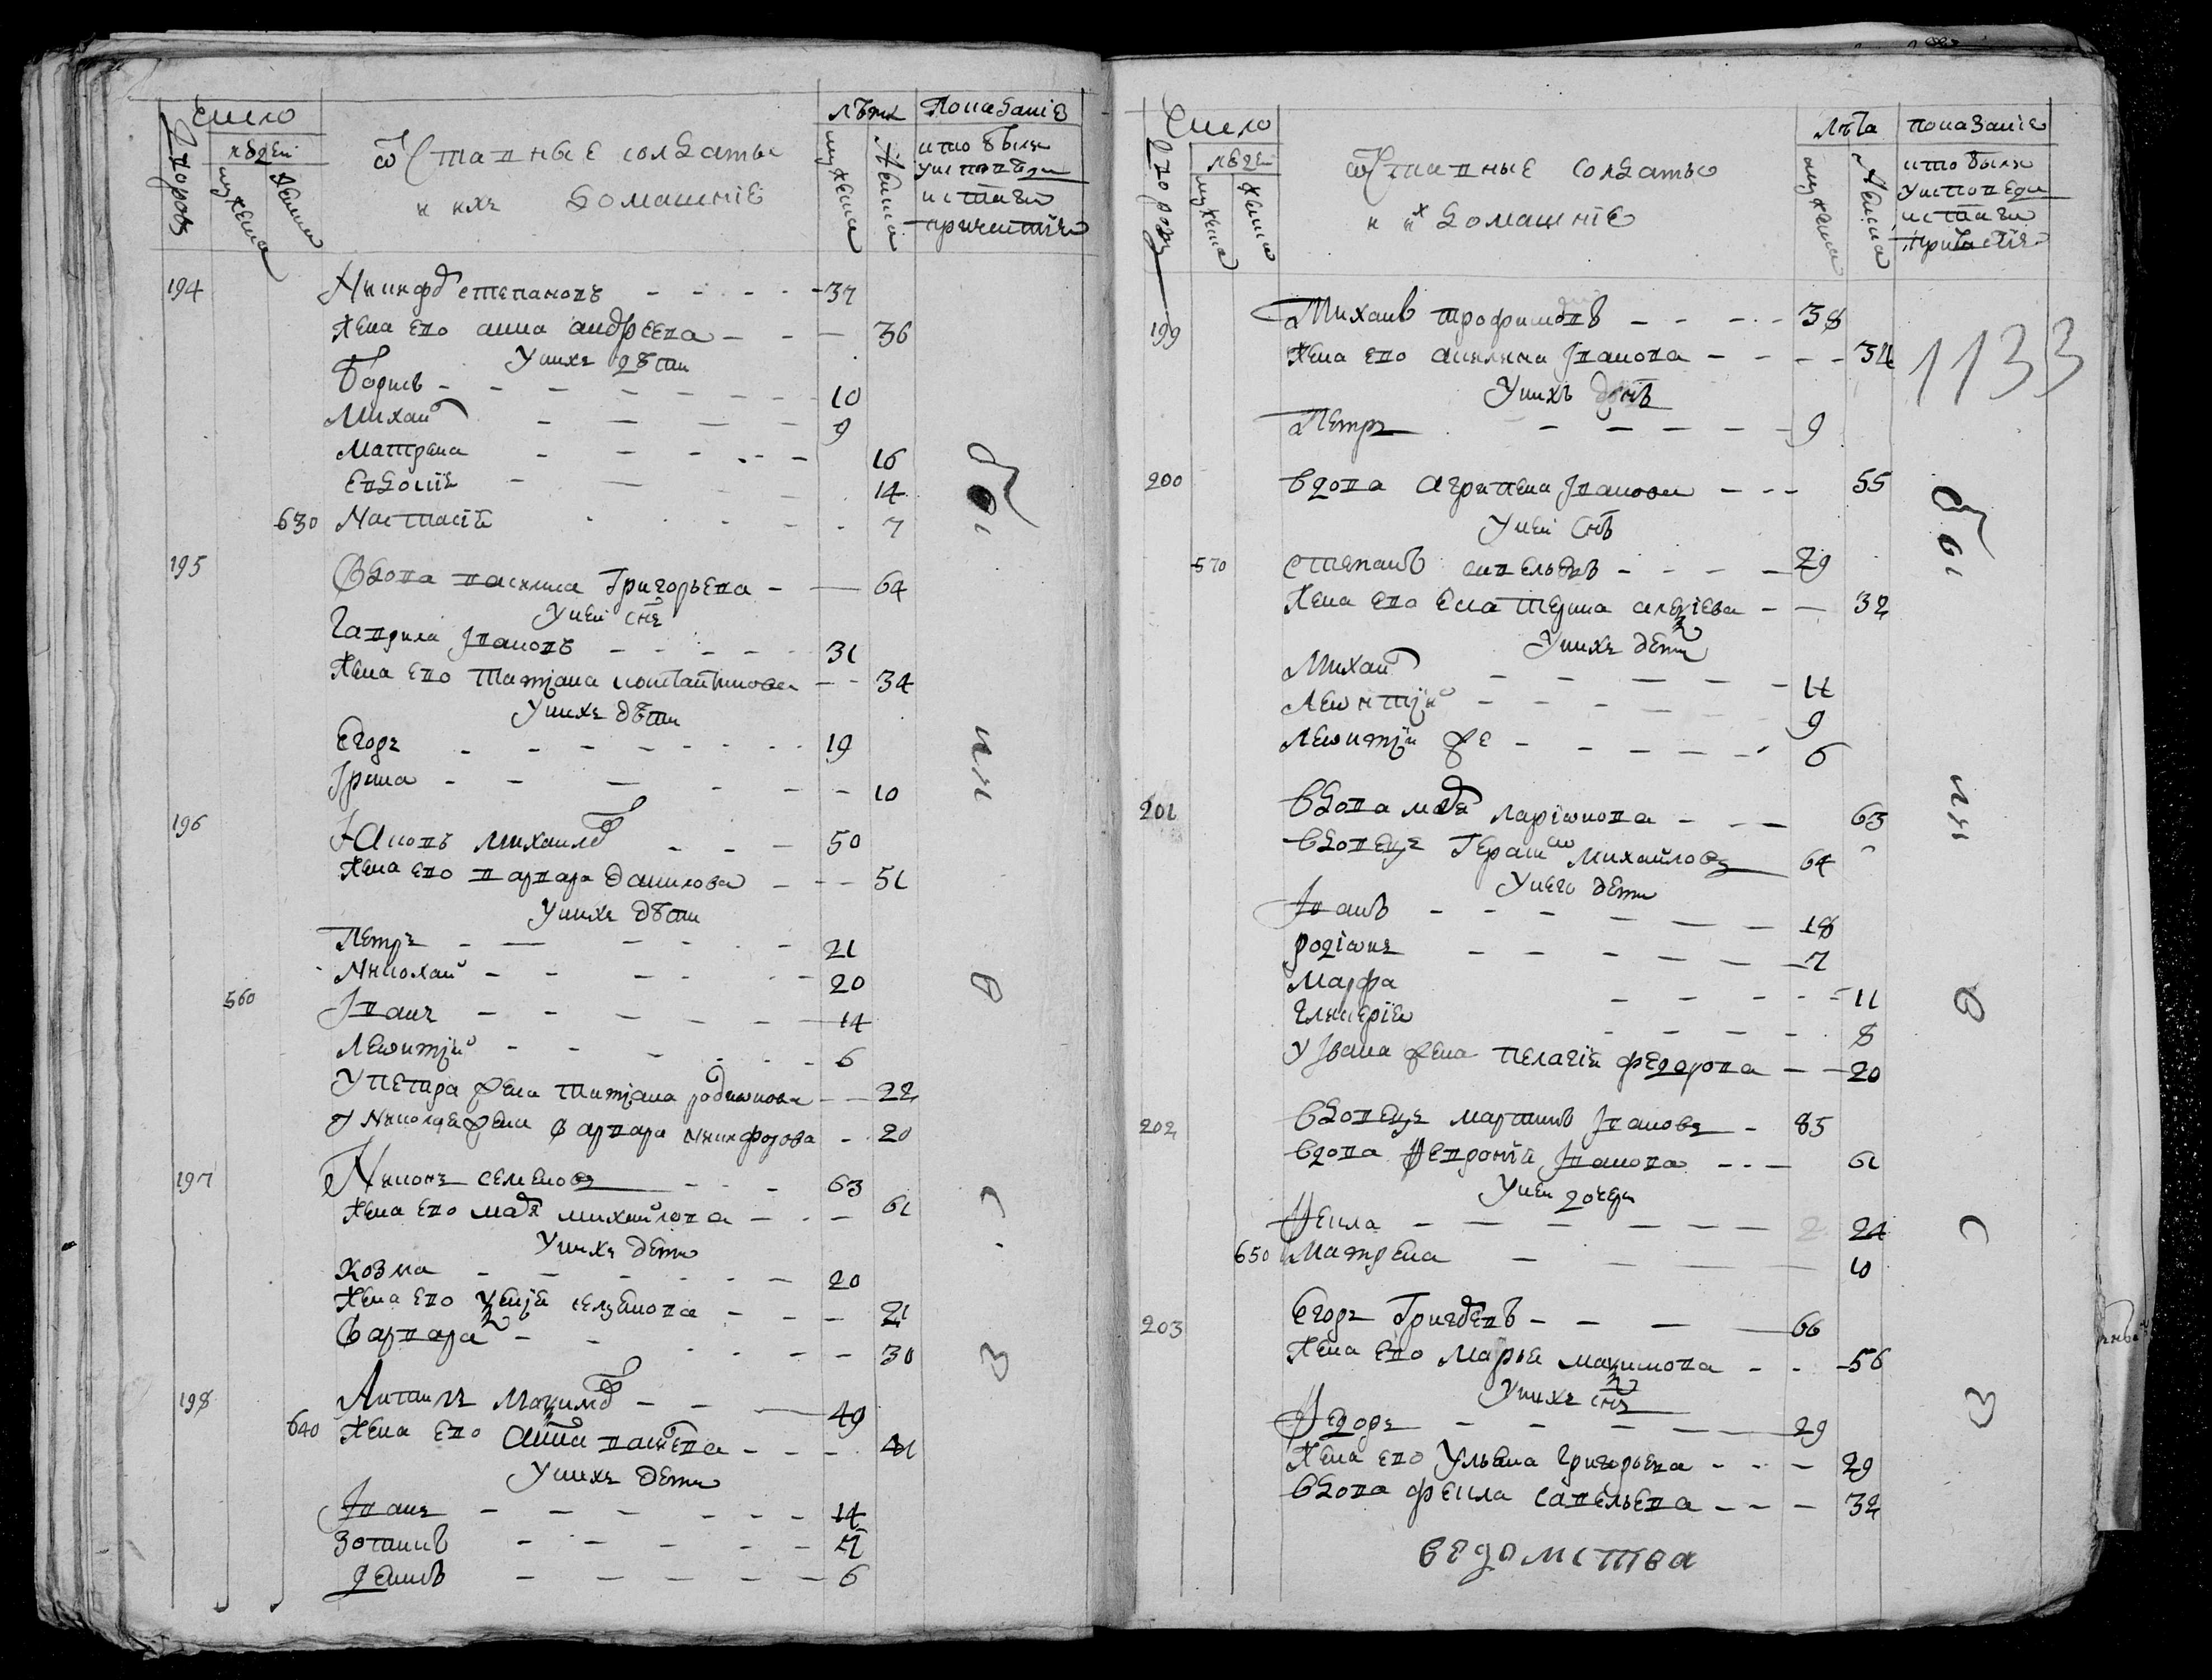 число
людей
дворовъ
мужеска
женска
ѿставные солдаты
и ихъ домашніе
лѣта
мужеска
женска
показаніе
кто былъ
у исповеди
и с. таги
причастія
194 Никифоръ Степановъ 37
жена его Анна Андреева 36
У нихъ дѣти
Борисъ 10
Михаилъ 9
Матрена 16
Евдокія 14
630 Настасія 7
195 Вдова Василиса Григорьева 64
У ней снъ
Гаврила Івановъ 31
жена его Татіана Констаптинова 34
У нихъ дѣти
Егоръ 19
Ірина 10
196 Іаковъ Михаиловъ 50
жена его Варвара Данилова 51
У нихъ дѣти
Петръ 21
Николай 20
560 Іванъ 14
Леѡнтій 6
У Петра жена Татіана Родиѡнова 22
У Николая жена Варвара Никифорова 20
197 Никонъ Семеновъ 63
жена его Марѳа Михайлова 61
У нихъ дети
Козма 20
жена его Ксенія Селуянова 21
Варвара 30
198 Антипъ Максимовъ 49
640 жена его Анна Васильева 41
У нихъ дети
Іванъ 14
Зотикъ 7
Денисъ 6
были
ѡ
с
з
число
людей
дворовъ
мужеска
женска
ѿставные солдаты
и ихъ домашніе
лѣта
мужеска
женска
показаніе
кто былъ
у исповеди
и с. таги
причастія
1133
199 Михаилъ Трофимовъ 38
жена его Акилина Іванова 34
У нихъ снъ
Петръ 9
200 Вдова Агрипена Іванова 55
У ней снъ
570 Степанъ Савельевъ 29
жена его Екатерина Алексіева 32
У нихъ дети
Михаилъ 11
Леѡнтій 9
Леѡнтій же 6
201 Вдова Марѳа Ларіѡнова 63
Вдовецъ Герасимъ Михайловъ 64
У него дети
Іванъ 18
Родіѡнъ 7
Марфа 11
Гликерія 8
У Івана жена Пелагія Федорова 20
202 Вдовецъ Мартинъ Івановъ 85
Вдова Февронія Іванова 61
У неи дочери
Фекла 24
650 Матрена 10
203 Егоръ Григорьевъ 66
жена его Марья Максимова 56
У нихъ снъ
Федоръ 29
жена его Ульяна Григорьева 29
Вдова Фекла Савельева 32
были
ѳ
с
з
ведомства